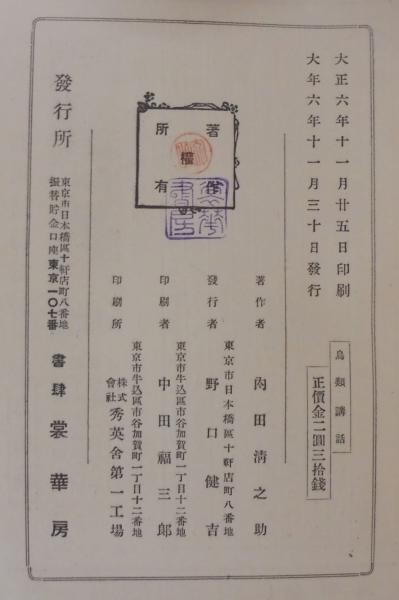 大正六年十一月廿五日印刷
大年六年十一月三十日發行
鳥類講話
正價金二圓三拾錢
著作
權
所有
著作者 內田淸之助
東京市日本橋區十軒店町八番地
發行者 野口健吉
東京市牛込區市谷加賀町一丁目十二番地
印刷者 中田福三郎
東京市牛込區市谷加賀町一丁目十二番地
印刷所 株式會社 秀英舍第一工場
發行所
東京市日本橋區十軒店町八番地
振替貯金口座東京一〇七番
書肆 裳華房
裳華書房